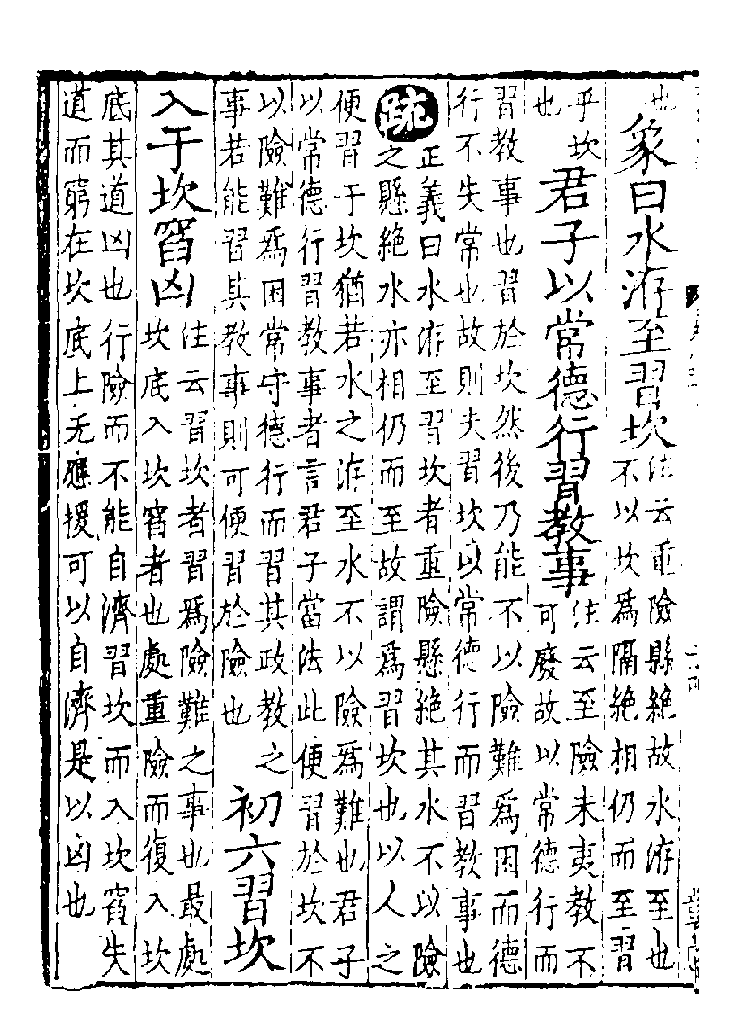 也
象曰水洊至習坎
注云重險懸絶故水洊至也
不以坎爲隔絶相仍而至習
乎坎
也
君子以常德行習教事
注云至險未夷教不
可廢故以常德行而
習教事也習於坎然後乃能不以險難爲困而德
行不失常也故則夫習坎以常德行而習教事也
疏
正義曰水洊至習坎者重險懸絶其水不以險
之懸絶水亦相仍而至故謂爲習坎也以人之
便習于坎猶若水之洊至水不以險爲難也君子
以常德行習教事者言君子當法此便習於坎不
以險難爲困常守德行而習其政教之
事若能習其教事則可便習於險也
初六習坎
入于坎窞凶
注云習坎者習爲險難之事也最處
坎底入坎窞者也處重險而復入坎
底其道凶也行險而不能自濟習坎而入坎窞失
道而窮在坎底上无應援可以自濟是以凶也